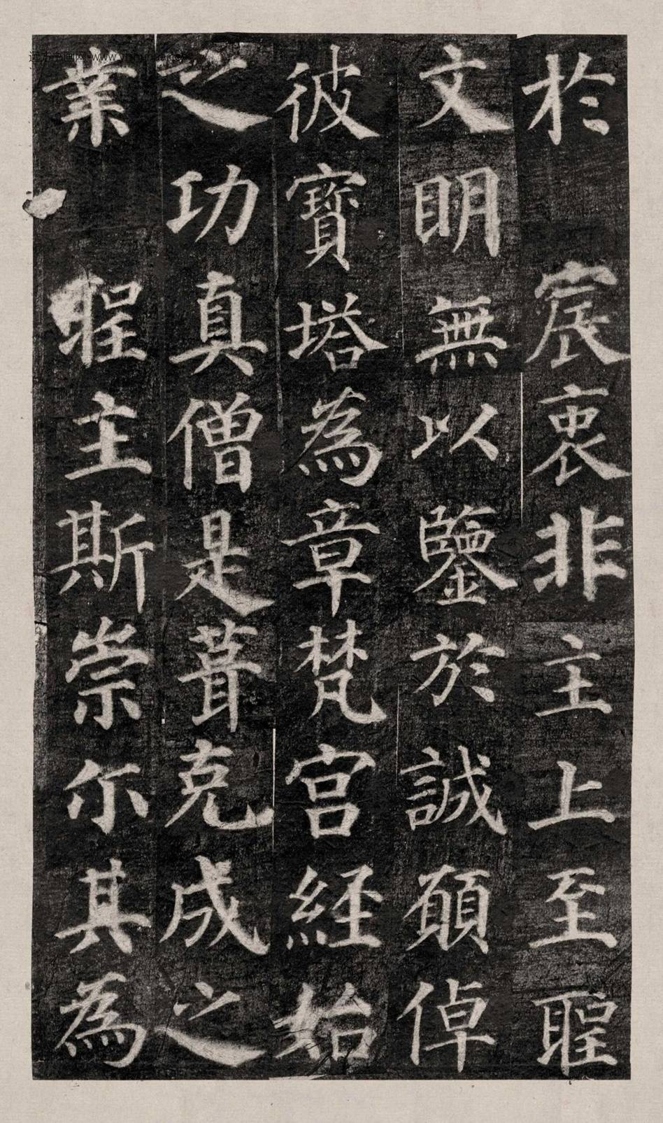 於宸衷非主上至聖
文明無以鑒於誠願倬
彼寶塔為章梵宮經始
之功真僧是葺克成之
業聖主斯崇尔其為